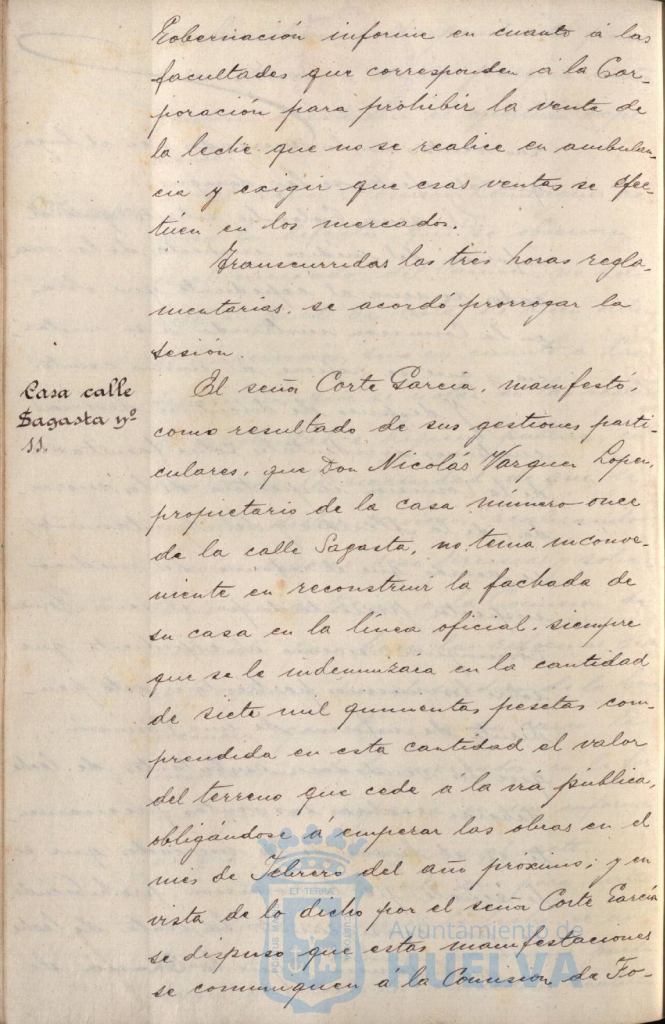 Gobernación informe en cuanto á las
facultades que corresponden á la Cor-
poración para prohibir la venta de
la leche que no se realice en ambulan-
cia y exigir que esas ventas se efec-
túen en los mercados.
Transcurridas las tres horas regla-
mentarias, se acordó prorrogar la
sesión.
Casa calle
Sagasta nº
11.
El señor Corte García, manifestó,
como resultado de sus gestiones parti-
culares, que Don Nicolás Vazquez Lopez,
propietario de la casa número once
de la calle Sagasta, no tenía inconve-
niente en reconstruir la fachada de
su casa en la línea oficial, siempre
que se le indemnizara en la cantidad
de siete mil quinientas pesetas com-
prendida en esta cantidad el valor
del terreno que cede á la vía pública,
obligándose á empezar las obras en el
mes de Febrero del año próximo; y en
vista de lo dicho por el señor Corte García
se dispuso que estas manifestaciones
se comuniquen á la Comisión de Fo-
Ayuntamiento de
HUELVA